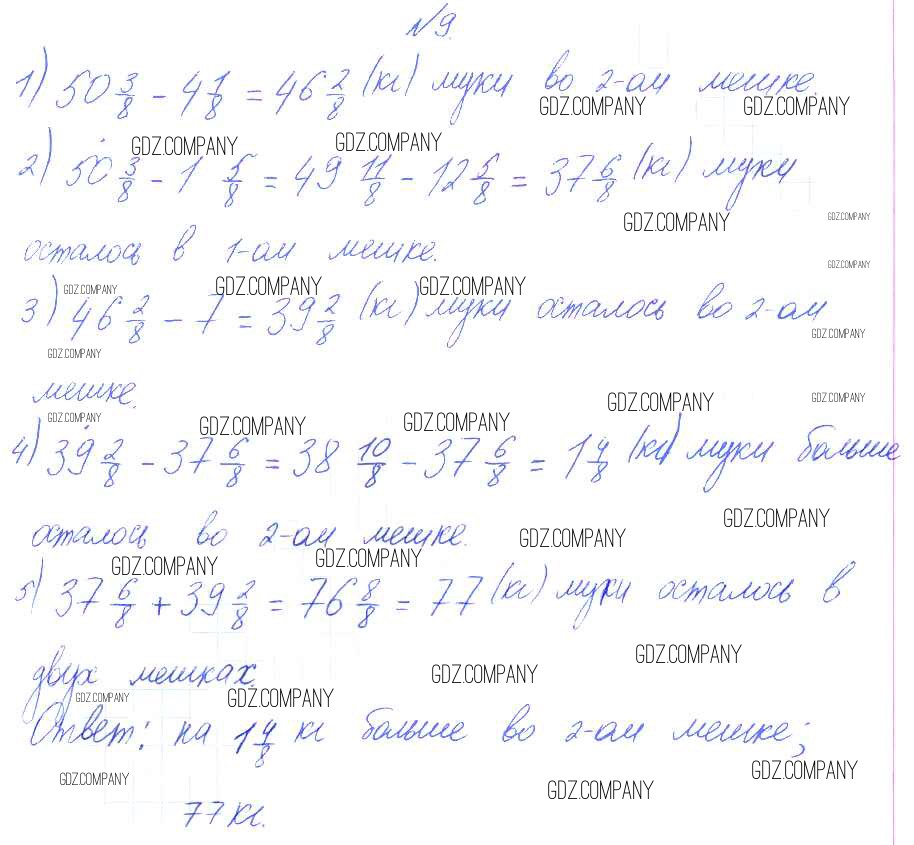 №9.
1) 50 3/8 - 4 1/8 = 46 2/8 (кг) муки во 2-ом мешке.
GDZ.COMPANY GDZ.COMPANY
GDZ.COMPANY GDZ.COMPANY
2) 50 3/8 - 1 5/8 = 49 11/8 - 12 5/8 = 37 6/8 (кг) муки
GDZ.COMPANY GDZ.COMPANY
осталось в 1-ом мешке.
GDZ.COMPANY
GDZ.COMPANY GDZ.COMPANY GDZ.COMPANY
3) 46 2/8 - 7 = 39 2/8 (кг) муки осталось во 2-ом
GDZ.COMPANY
GDZ.COMPANY
мешке.
GDZ.COMPANY GDZ.COMPANY
GDZ.COMPANY GDZ.COMPANY GDZ.COMPANY
4) 39 2/8 - 37 6/8 = 38 10/8 - 37 6/8 = 1 4/8 (кг) муки больше
GDZ.COMPANY
осталось во 2-ом мешке.
GDZ.COMPANY
GDZ.COMPANY GDZ.COMPANY
5) 37 6/8 + 39 2/8 = 76 8/8 = 77 (кг) муки осталось в
GDZ.COMPANY
двух мешках.
GDZ.COMPANY
GDZ.COMPANY GDZ.COMPANY
Ответ: на 1 4/8 кг больше во 2-ом мешке;
GDZ.COMPANY
GDZ.COMPANY GDZ.COMPANY
77 кг.